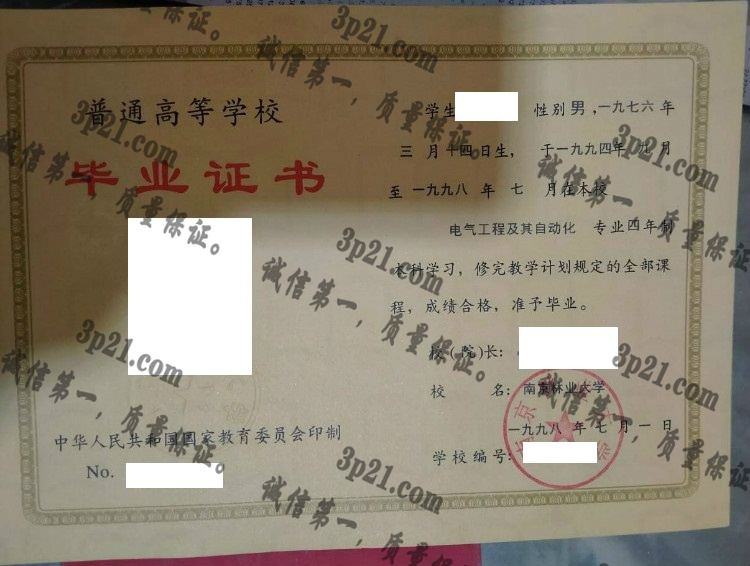 普通高等学校
毕业证书
中华人民共和国国家教育委员会印制
No.
学生 性别 男,一九七六年
三 月十四日生, 于一九九四年 九 月
至 一九九八 年 七 月在本校
电气工程及其自动化 专业 四 年制
本科学习, 修完教学计划规定的全部课
程, 成绩合格, 准予毕业。
校(院)长:
校 名: 南京林业大学
一九九八 年 七 月 一 日
学校编号:
3p21.com
诚信第一,质量保证。
3p21.com
诚信第一,质量保证。
3p21.com
诚信第一,质量保证。
3p21.com
诚信第一,质量保证。
3p21.com
诚信第一,质量保证。
3p21.com
诚信第一,质量保证。
3p21.com
诚信第一,质量保证。
3p21.com
诚信第一,质量保证。